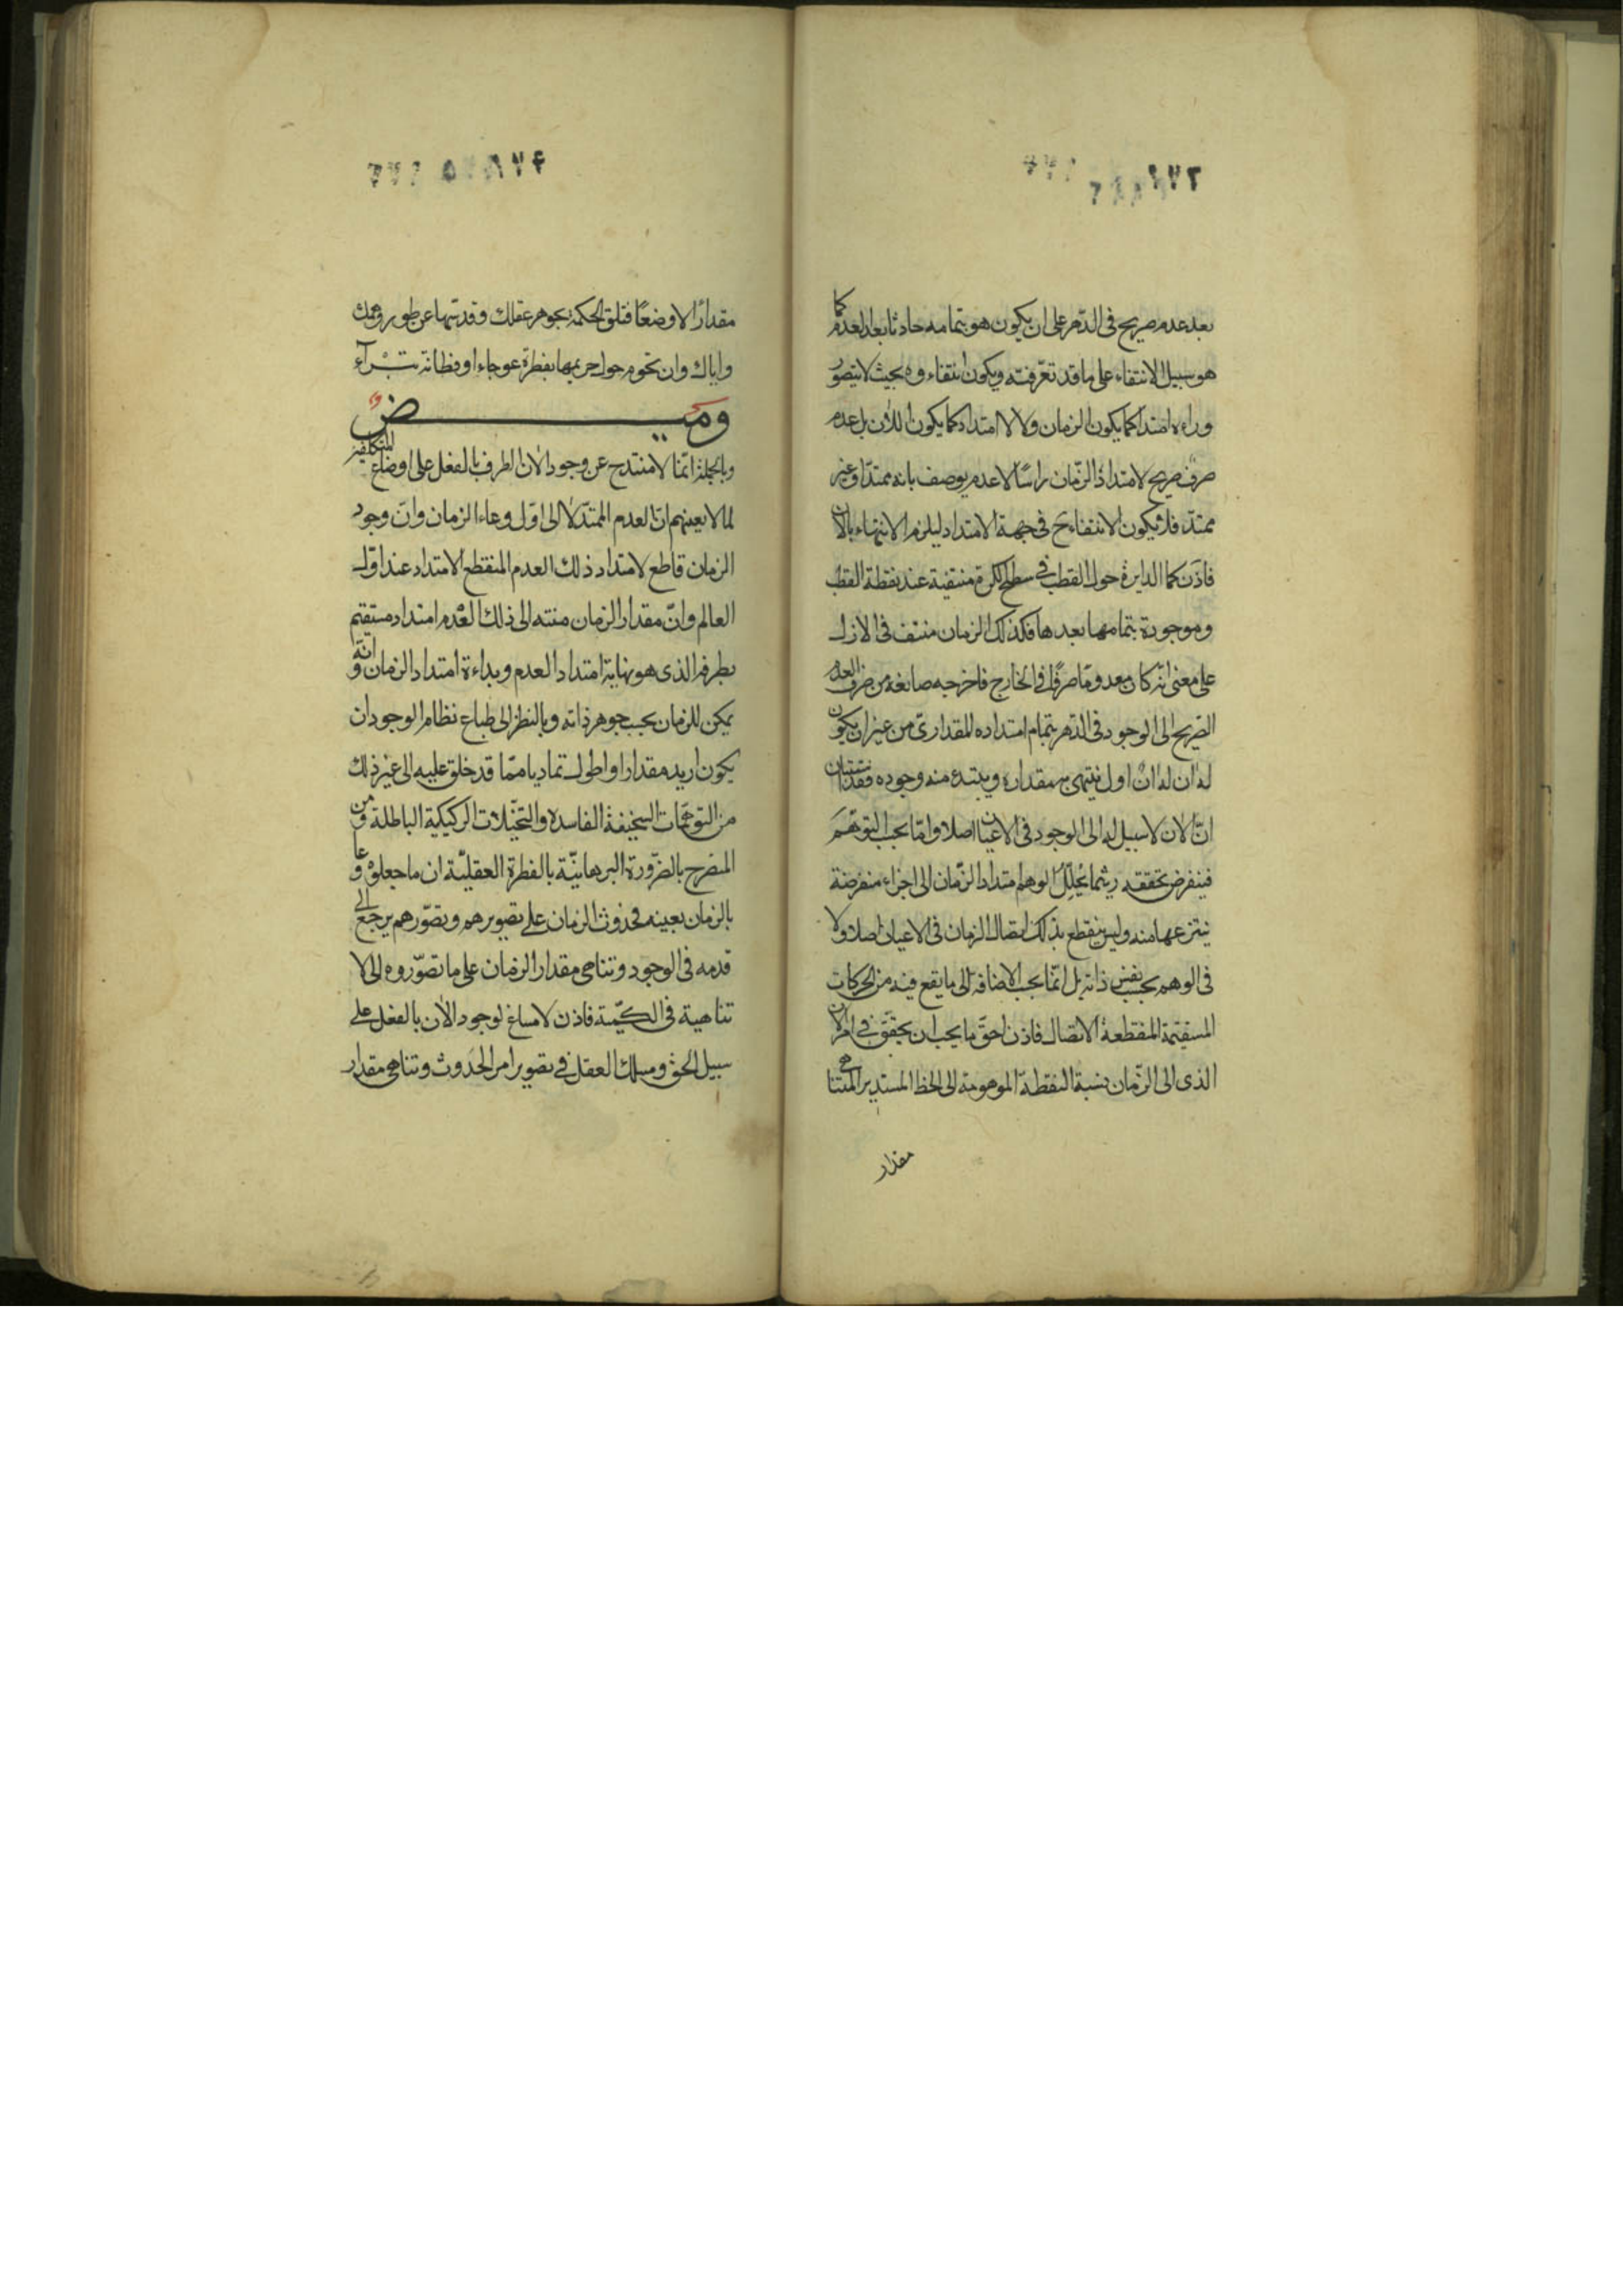 بعد عدم صريح فى الدهر على ان يكون هو بتمامه حادثا بعد العدم كما
هو سبيل الانتفاء على ما قد تعرّفته ويكون انتفاءوه بحيث لا يتصوّر
وراءه امتداد كما يكون الزمان ولا لا امتداد كما يكون للآن بل عدم
صرف صريح لامتداد الزّمان راسًا لا عدم يوصف بانه ممتدّ او غير
ممتدّ فلا يكون الانتفاء ح فى جهة الامتداد ليلزم الانتهاء بالآن
فاذن كما الدايرة حول القطب فى سطح الكرة منتفية عند نقطة القطب
وموجودة بتمامها بعدها فكذلك الزمان منتف فى الازل
على معنى انّه كان معدومًا صرفًا فى الخارج فاخرجه صانعه من صرف العدم
الصّريح الى الوجود فى الدّهر بتمام امتداده المقدارى من غير ان يكون
له آن اول ينتهى به مقداره ويبتدء منه وجوده
انّ الآن لا سبيل له الى الوجود فى الاعيان اصلا وامّا بحسب التوهّم
فينفرض تحققه ريثما يحلّل الوهم امتداد الزّمان الى اجزاء منفرضة
ينتزعها منه وليس ينقطع بذلك اتصال الزمان فى الاعيان اصلا ولا
فى الوهم بحسب نفس ذاته بل انّما بحسب الاضافة الى ما يقع فيه من الحركات
المستقيمة المنقطعة الاتصال فاذن احقّ ما يجب ان يحقّق فى امر الآن
الذى الى الزّمان نسبة النقطة الموهومة الى الخط المستدير المتناهى
مقدار
مقدارًا لا وضعًا فتلق الحكمة بجوهر عقلك وقدّسها عن طور وهمك
واياك وان تحوم حول حريمها بفطرة عوجاء او فطانة بتراء
وميض
وبالجملة انّما لا منتدح عن وجود الآن الطرف بالفعل على اوضاع المتكلفين
لما لا يعنيهم انّ العدم الممتدّ لا الى اوّل وعاء الزمان وانّ وجود
الزمان قاطع لامتداد ذلك العدم المنقطع الامتداد عند اوّل
العالم وانّ مقدار الزمان منته الى ذلك العدم امتداد مستقيم
بطرفه الذى هو نهاية امتداد العدم وبداءة امتداد الزمان وانّه
يمكن للزمان بحسب جوهر ذاته وبالنظر الى طباع نظام الوجود ان
يكون ازيد مقدارا واطول تماديا ممّا قد خلق عليه الى غير ذلك
من التوهّمات السخيفة الفاسدة والتخيّلات الركيكة الباطلة ومن
المنصرح بالضّرورة البرهانيّة بالفطرة العقليّة ان ما جعلوه وعاء
بالزمان بعينه فحدوث الزمان على تصويرهم وتصوّرهم يرجع الى
قدمه فى الوجود وتناهى مقدار الزمان على ما تصوّروه الى لا
تناهية فى الكمّية فاذن لا مساغ لوجود الآن بالفعل على
سبيل الحق ومسلك العقل فى تصوير امر الحدوث وتناهى مقدار